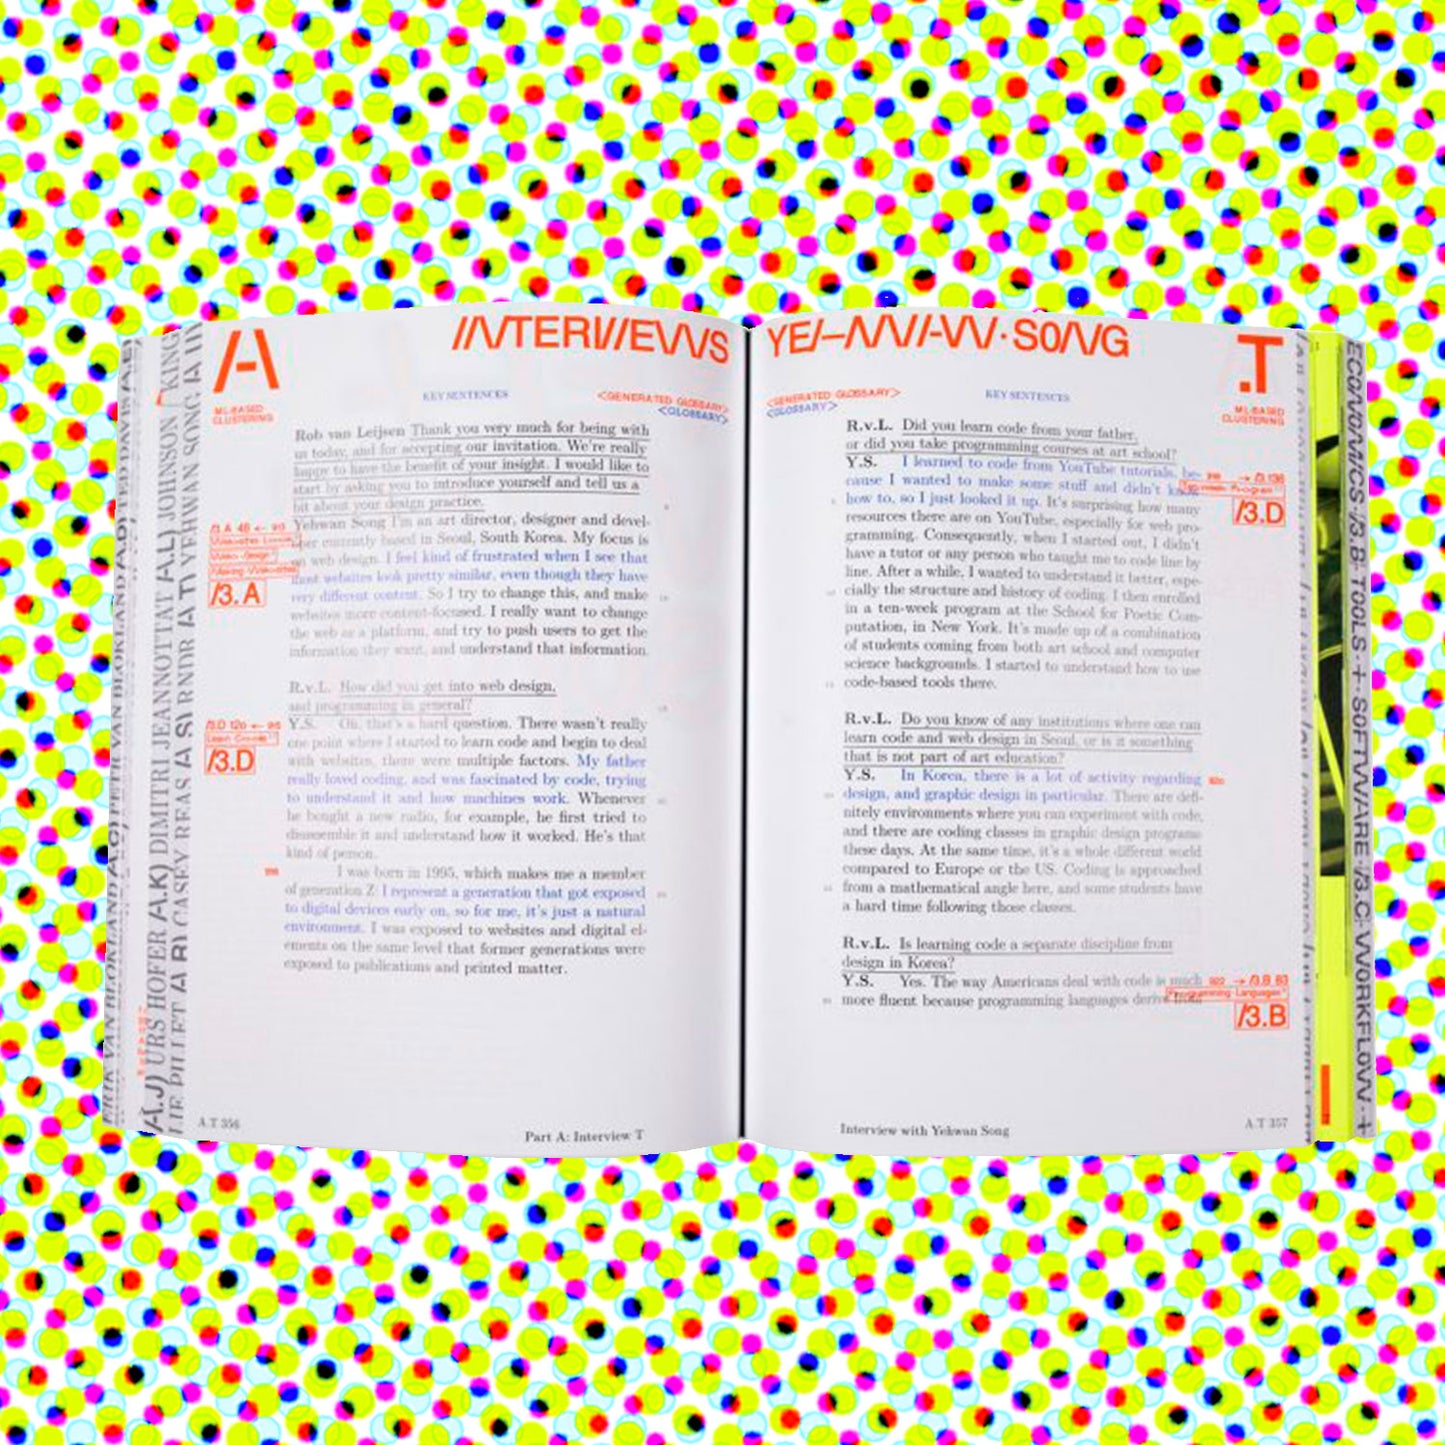 A
INTERVIEWS
ML-BASED
CLUSTERING
KEY SENTENCES
<GENERATED GLOSSARY>
<GLOSSARY>
Rob van Leijsen Thank you very much for being with
us today, and for accepting our invitation. We're really
happy to have the benefit of your insight. I would like to
start by asking you to introduce yourself and tell us a
bit about your design practice.
Yehwan Song I'm an art director, designer and devel-
oper currently based in Seoul, South Korea. My focus is
on web design. I feel kind of frustrated when I see that
most websites look pretty similar, even though they have
very different content. So I try to change this, and make
websites more content-focused. I really want to change
the web as a platform, and try to push users to get the
information they want, and understand that information.
/3.A
R.v.L. How did you get into web design,
and programming in general?
Y.S. Oh, that's a hard question. There wasn't really
one point where I started to learn code and begin to deal
with websites, there were multiple factors. My father
really loved coding, and was fascinated by code, trying
to understand it and how machines work. Whenever
he bought a new radio, for example, he first tried to
disassemble it and understand how it worked. He's that
kind of person.
/3.D
I was born in 1995, which makes me a member
of generation Z: I represent a generation that got exposed
to digital devices early on, so for me, it's just a natural
environment. I was exposed to websites and digital el-
ements on the same level that former generations were
exposed to publications and printed matter.
A.T 356
Part A: Interview T
YEHWAN SONG
.T
ML-BASED
CLUSTERING
<GENERATED GLOSSARY>
<GLOSSARY>
KEY SENTENCES
R.v.L. Did you learn code from your father,
or did you take programming courses at art school?
Y.S. I learned to code from YouTube tutorials, be-
cause I wanted to make some stuff and didn't know
how to, so I just looked it up. It's surprising how many
resources there are on YouTube, especially for web pro-
gramming. Consequently, when I started out, I didn't
have a tutor or any person who taught me to code line by
line. After a while, I wanted to understand it better, espe-
cially the structure and history of coding. I then enrolled
in a ten-week program at the School for Poetic Com-
putation, in New York. It's made up of a combination
of students coming from both art school and computer
science backgrounds. I started to understand how to use
code-based tools there.
/3.D
R.v.L. Do you know of any institutions where one can
learn code and web design in Seoul, or is it something
that is not part of art education?
Y.S. In Korea, there is a lot of activity regarding
design, and graphic design in particular. There are defi-
nitely environments where you can experiment with code,
and there are coding classes in graphic design programs
these days. At the same time, it's a whole different world
compared to Europe or the US. Coding is approached
from a mathematical angle here, and some students have
a hard time following those classes.
R.v.L. Is learning code a separate discipline from
design in Korea?
Y.S. Yes. The way Americans deal with code is much
more fluent because programming languages derive from
Programming Languages
/3.B
Interview with Yehwan Song
A.T 357
A.J) URS HOFER A.K) DIMITRI JEANNOTTAT A.L) JOHNSON
A.R) CASEY REAS A.S) RNDR A.T) YEHWAN SONG
ERIK VAN BLOKLAND A.C) PETR VAN BLOKLAND A.D)
ECONOMICS /3.B TOOLS + SOFTWARE /3.C WORKFLOW +